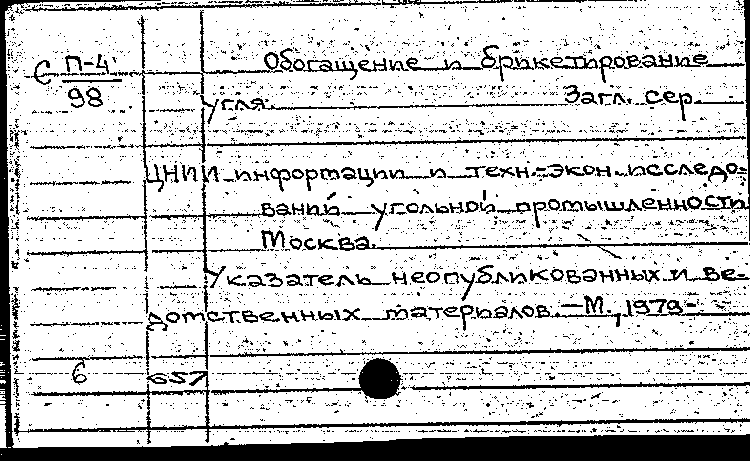 Обогащение и брикетирование
С П-4
98
угля. Загл. сер.
ЦНИИ информации и техн.-экон. исследо-
ваний угольной промышленности
Москва.
Указатель неопубликованных и ве-
домственных материалов.—М., 1979-
6 657